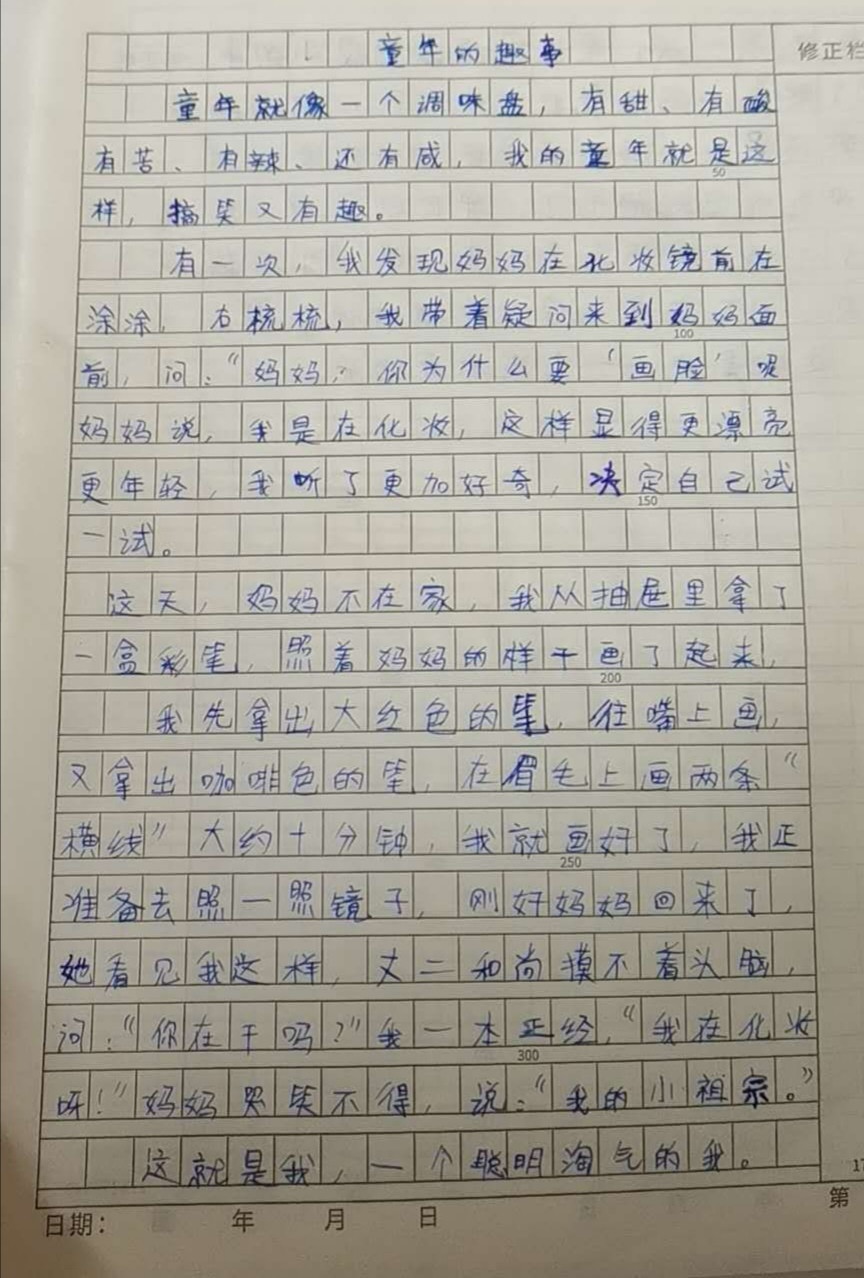 童年的趣事
修正栏
童年就像一个调味盘，有甜、有酸
有苦、有辣、还有咸，我的童年就是这
50
样，搞笑又有趣。
有一次，我发现妈妈在化妆镜前在
涂涂，右梳梳，我带着疑问来到妈妈面
100
前，问：“妈妈，你为什么要‘画脸’呢
妈妈说，我是在化妆，这样显得更漂亮
更年轻，我听了更加好奇，决定自己试
150
一试。
这天，妈妈不在家，我从抽屉里拿了
一盒彩笔，照着妈妈的样子画了起来，
200
我先拿出大红色的笔，往嘴上画，
又拿出咖啡色的笔，在眉毛上画两条“
横线”大约十分钟，我就画好了，我正
250
准备去照一照镜子，刚好妈妈回来了，
她看见我这样，丈二和尚摸不着头脑，
问：“你在干吗？”我一本正经，“我在化妆
300
呀！”妈妈哭笑不得，说：“我的小祖宗。”
这就是我，一个聪明淘气的我。
17
日期： 年 月 日
第